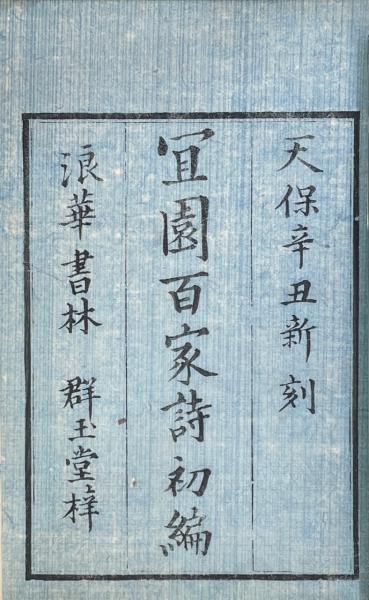 天保辛丑新刻
冝園百家詩初編
浪華書林 群玉堂梓